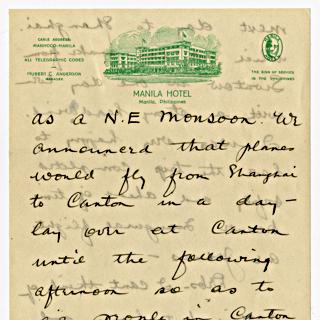 CABLE ADDRESS:
MANHOCO-MANILA
ALL TELEGRAPHIC CODES
HUBERT C. ANDERSON
MANAGER
THE SIGN OF SERVICE
IN THE PHILIPPINES
MANILA HOTEL
Manila, Philippines
as a N.E Monsoon. We
announced that planes
would fly from Shanghai
to Canton in a day -
lay over at Canton
until the following
afternoon so as to
in Canton